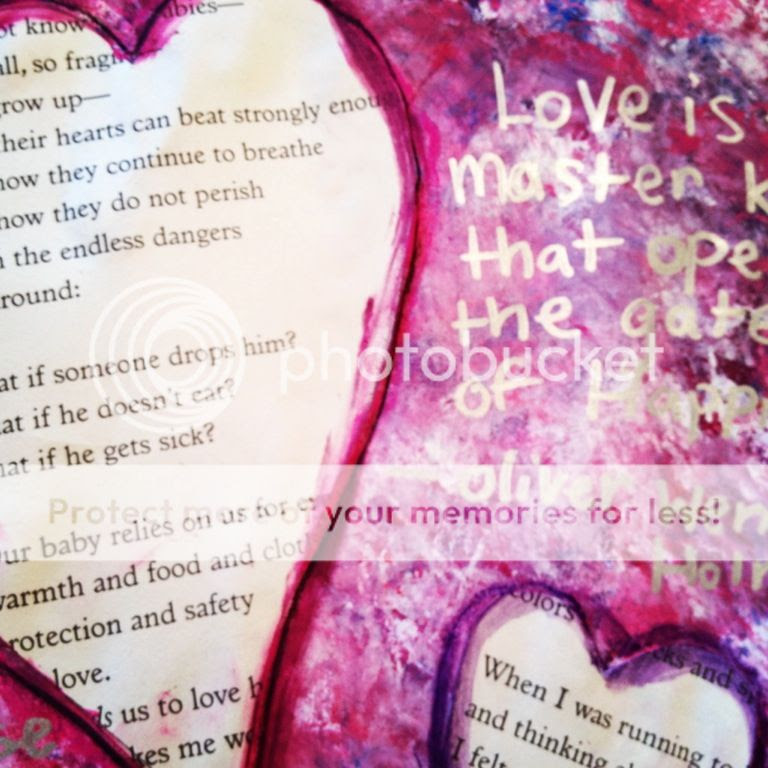 ot know
bies—
all, so fragi
grow up—
their hearts can beat strongly enou
how they continue to breathe
how they do not perish
n the endless dangers
round:
at if someone drops him?
at if he doesn't eat?
hat if he gets sick?
ur baby relies on us for
warmth and food and clot
rotection and safety
love.
ds us to love h
kes me wo
Love is
master k
that ope
the gate
of Happ
- Oliver Wen
Holm
colors
cks and s
When I was running to
and thinking
I felt
photobucket
Protect more of your memories for less!